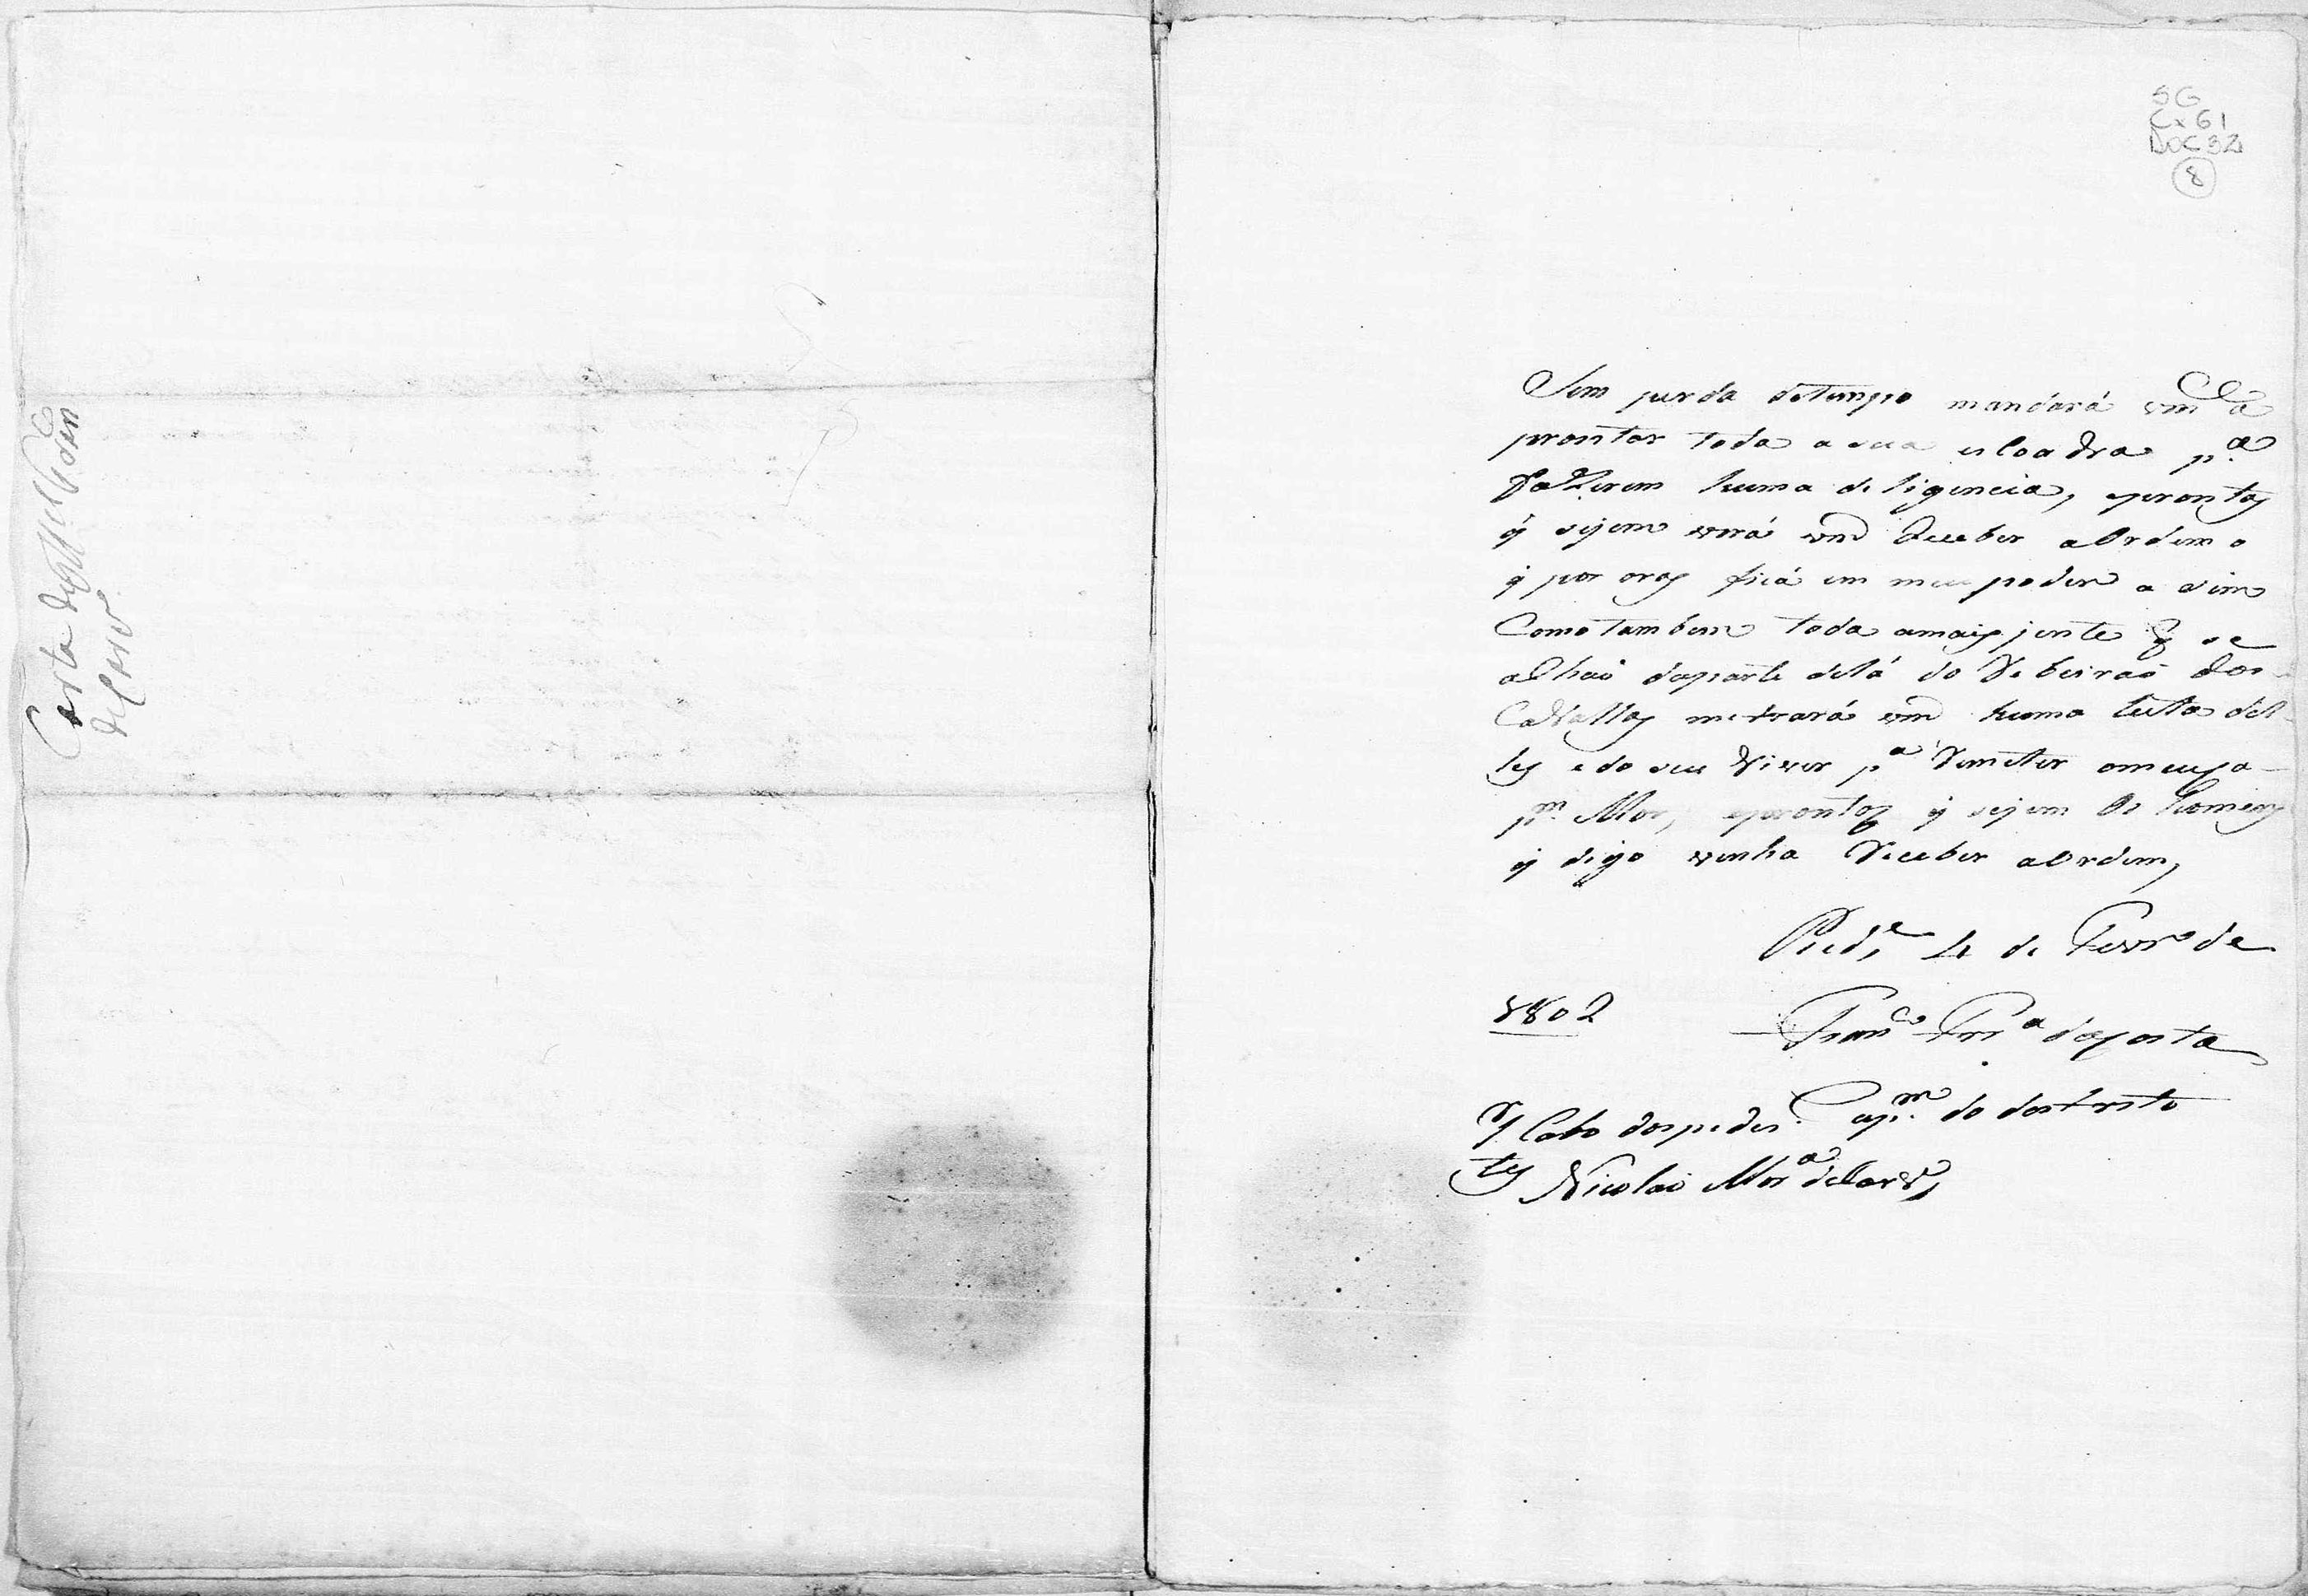 SG
Cx 61
DOC 32
8
Carta
de
Sem perda detempo mandará vm.ce a
prontar toda a sua escoadra p.a
fazerem huma deligencia, eprontos
q̃ sejem virá vm.ce Receber aOrdem
q̃ por ora fica em meu poder a sim
Como tambem toda amais jente q̃ se
alhaõ daparte delá do Ribeiraõ dos
Cavallos metrará vm.ce huma lista del-
les e do seu viver p.a Remeter omeuCa-
p.m Mor, eprontos q̃ sejem Os homens
q̃ digo venha Receber aOrdem,
Pied.e 4 de Fevr.o de
1802
Fran.co Frr.a daCosta
Cap.m do destrito
Sr. Cabo dospedes-
tes Nicolao Mor.a deCarv.o